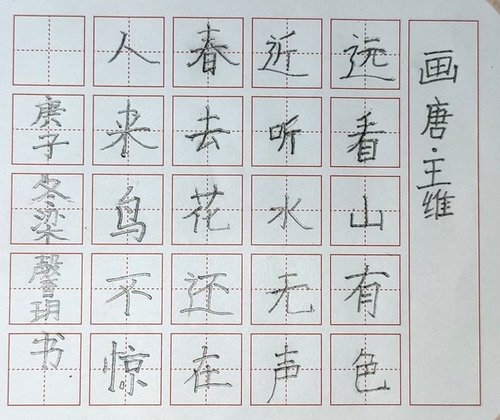 画唐·王维
远看山有色
近听水无声
春去花还在
人来鸟不惊
庚子冬梁馨玥书